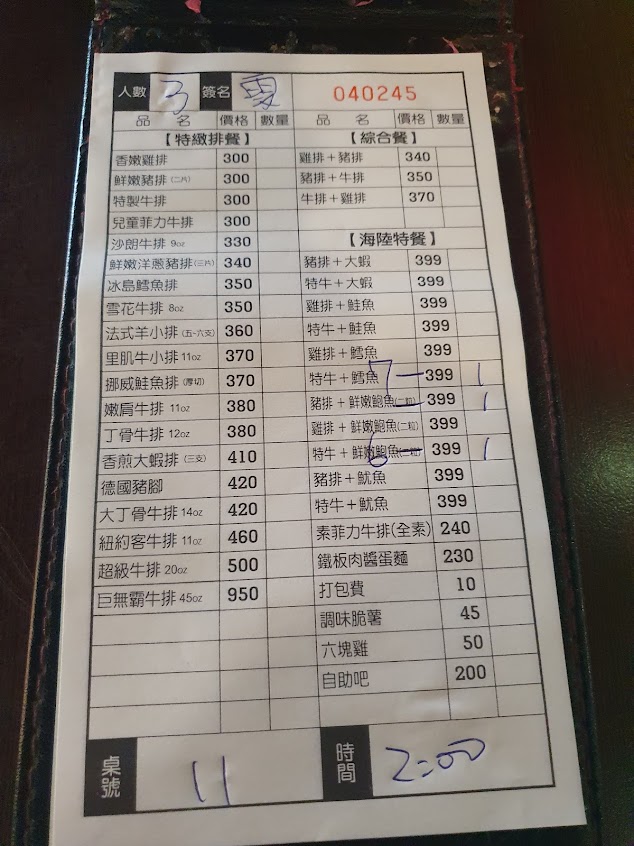 人數 3 簽名 040245
品 名 價格 數量
【特緻排餐】
香嫩雞排 300
鮮嫩豬排(二片) 300
特製牛排 300
兒童菲力牛排 300
沙朗牛排 9oz 330
鮮嫩洋蔥豬排(三片) 340
冰島鱈魚排 350
雪花牛排 8oz 350
法式羊小排(五~六支) 360
里肌牛小排 11oz 370
挪威鮭魚排(厚切) 370
嫩肩牛排 11oz 380
丁骨牛排 12oz 380
香煎大蝦排(三支) 410
德國豬腳 420
大丁骨牛排 14oz 420
紐約客牛排 11oz 460
超級牛排 20oz 500
巨無霸牛排 45oz 950
品 名 價格 數量
【綜合餐】
雞排+豬排 340
豬排+牛排 350
牛排+雞排 370
【海陸特餐】
豬排+大蝦 399
特牛+大蝦 399
雞排+鮭魚 399
特牛+鮭魚 399
雞排+鱈魚 399
特牛+鱈魚 7 399 1
豬排+鮮嫩鮑魚(二粒) 399 1
雞排+鮮嫩鮑魚(二粒) 399
特牛+鮮嫩鮑魚(二粒) 6 399 1
豬排+魷魚 399
特牛+魷魚 399
素菲力牛排(全素) 240
鐵板肉醬蛋麵 230
打包費 10
調味脆薯 45
六塊雞 50
自助吧 200
桌號 11 時間 2:00